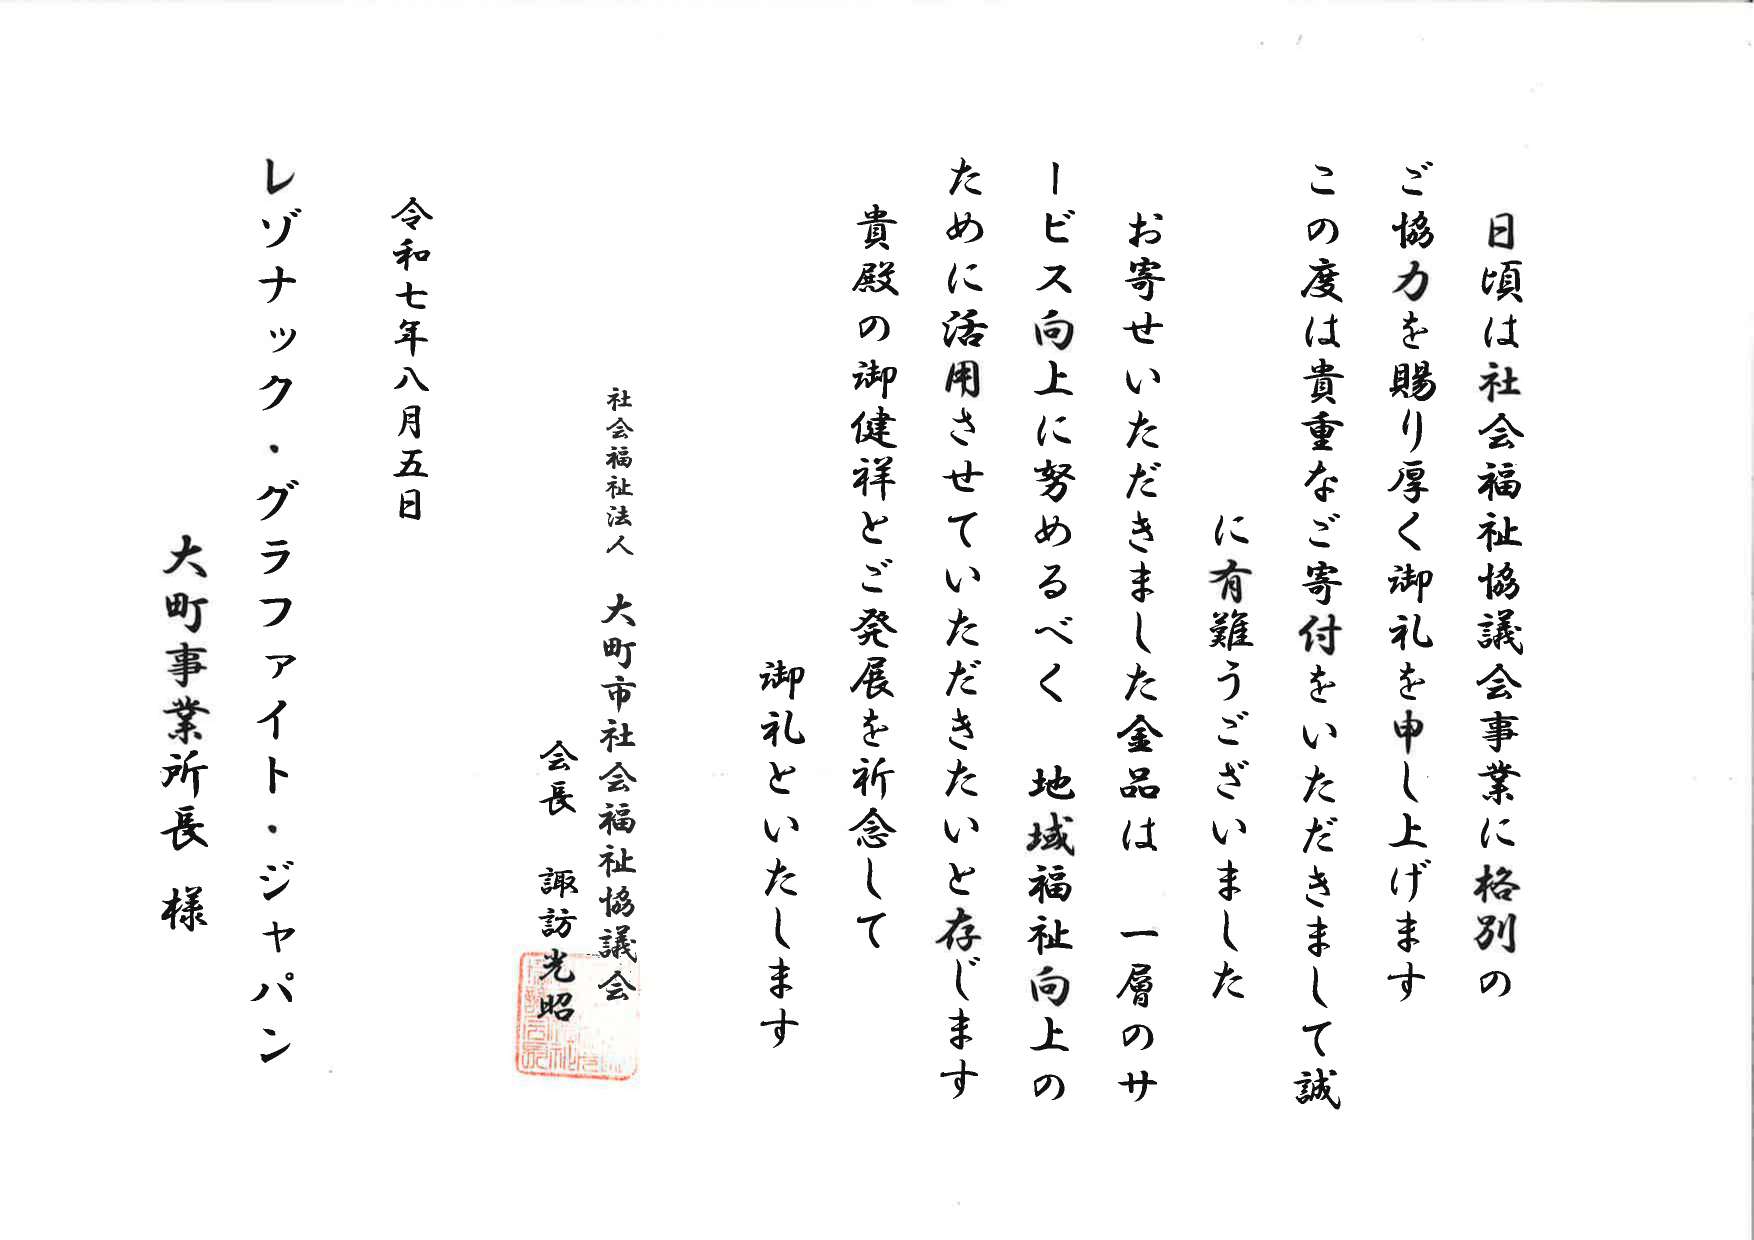 日頃は社会福祉協議会事業に格別の
ご協力を賜り厚く御礼を申し上げます
この度は貴重なご寄付をいただきまして誠
に有難うございました
お寄せいただきました金品は　一層のサ
ービス向上に努めるべく　地域福祉向上の
ために活用させていただきたいと存じます
貴殿の御健祥とご発展を祈念して
御礼といたします
社会福祉法人　大町市社会福祉協議会
会長　諏訪光昭
令和七年八月五日
レゾナック・グラファイト・ジャパン
大町事業所長　様